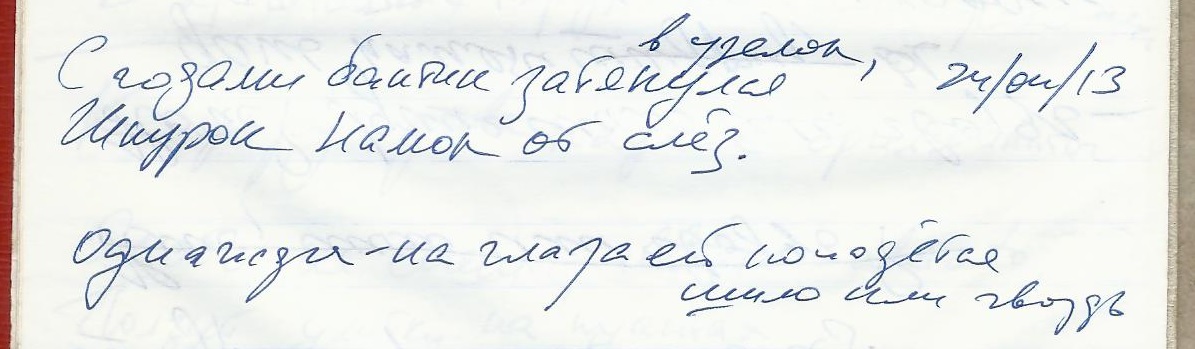 С годами бантик затянулся в узелок, 24/04/13
Шнурок намок от слёз.
Однажды - на глаза ей попадётся
шило или гвоздь